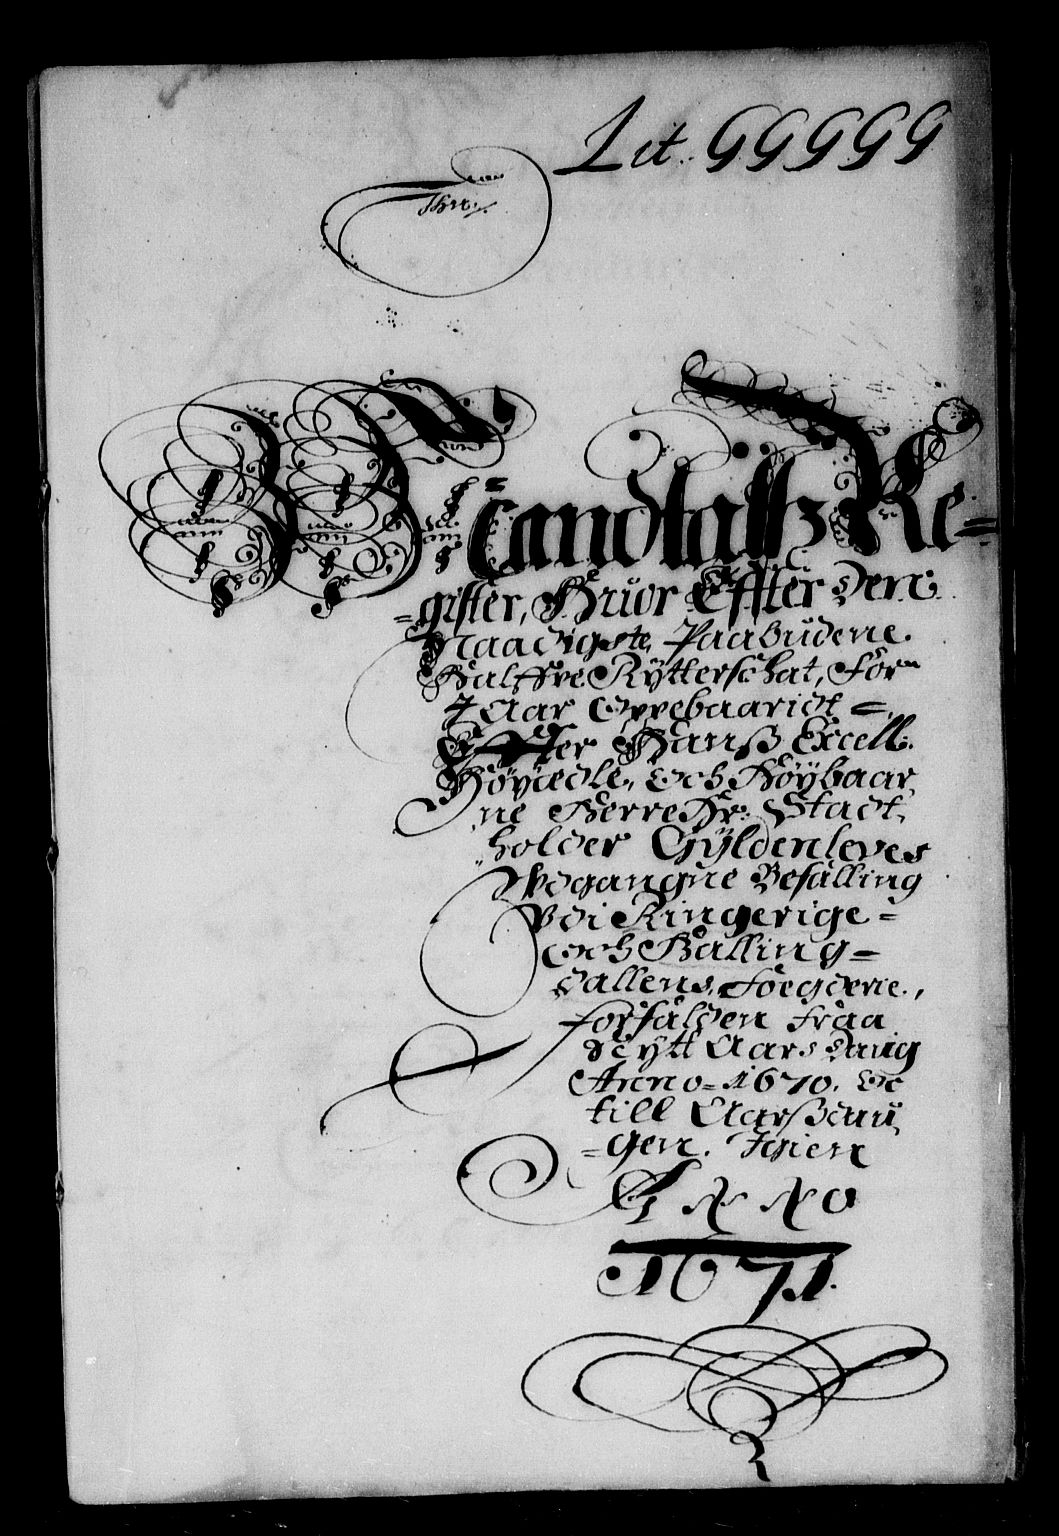 Lit. GGGGG
Mandtallz Re=
=gister, Huor Effter den
Naadigste Paabudene
Halffve Rytterschat, For
7 Aar Oppebaaridt =
Effter Hanß Excell.
Höyædle, och Höybaar
ne Herre Hr. Stadt
holder Gyldenleves
Udgangne Befalling
Udi Ringerige =
och Halling=
dallens Foegderie,
forfalden Fraa
Nytt Aars Daug
Anno = 1670. Oc
till Aarßdau
=gen. Igien
Anno
1671.